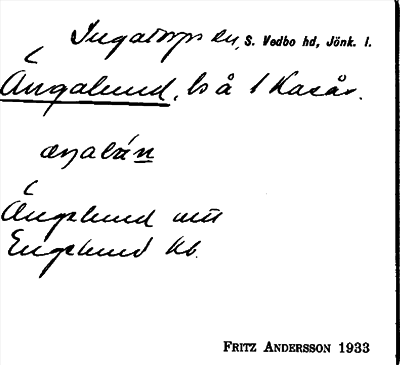 Ingatorps sn, S. Vedbo hd, Jönk. l.
Ängalund, ls å 1 Kasår.
æŋalán
Ängslund
Englund kb.
FRITZ ANDERSSON 1933